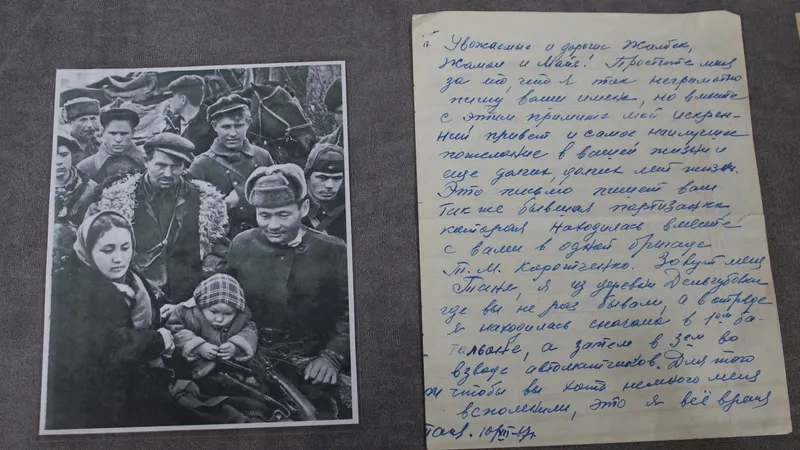 Уважаемые и дорогие Жилбек,
Жамал и Майе! Простите меня
за то, что я так неграмотно
пишу ваши имена, но вместе
с этим примите мой искрен-
ний привет и самое наилучшее
пожелание в вашей жизни и
еще долгих, долгих лет жизни.
Это письмо пишет вам
так же бывшая партизанка
которая находилась вместе
с вами в одной бригаде
Т. М. Коротченко. Зовут меня
Таня, я из деревни
где вы не раз бывали, а в отряде
я находилась сначала в 1ом ба-
тальоне, а затем в 3ем во
взводе автоматчиков. Для того
чтобы вы хоть немного меня
вспомнили, это я всё время